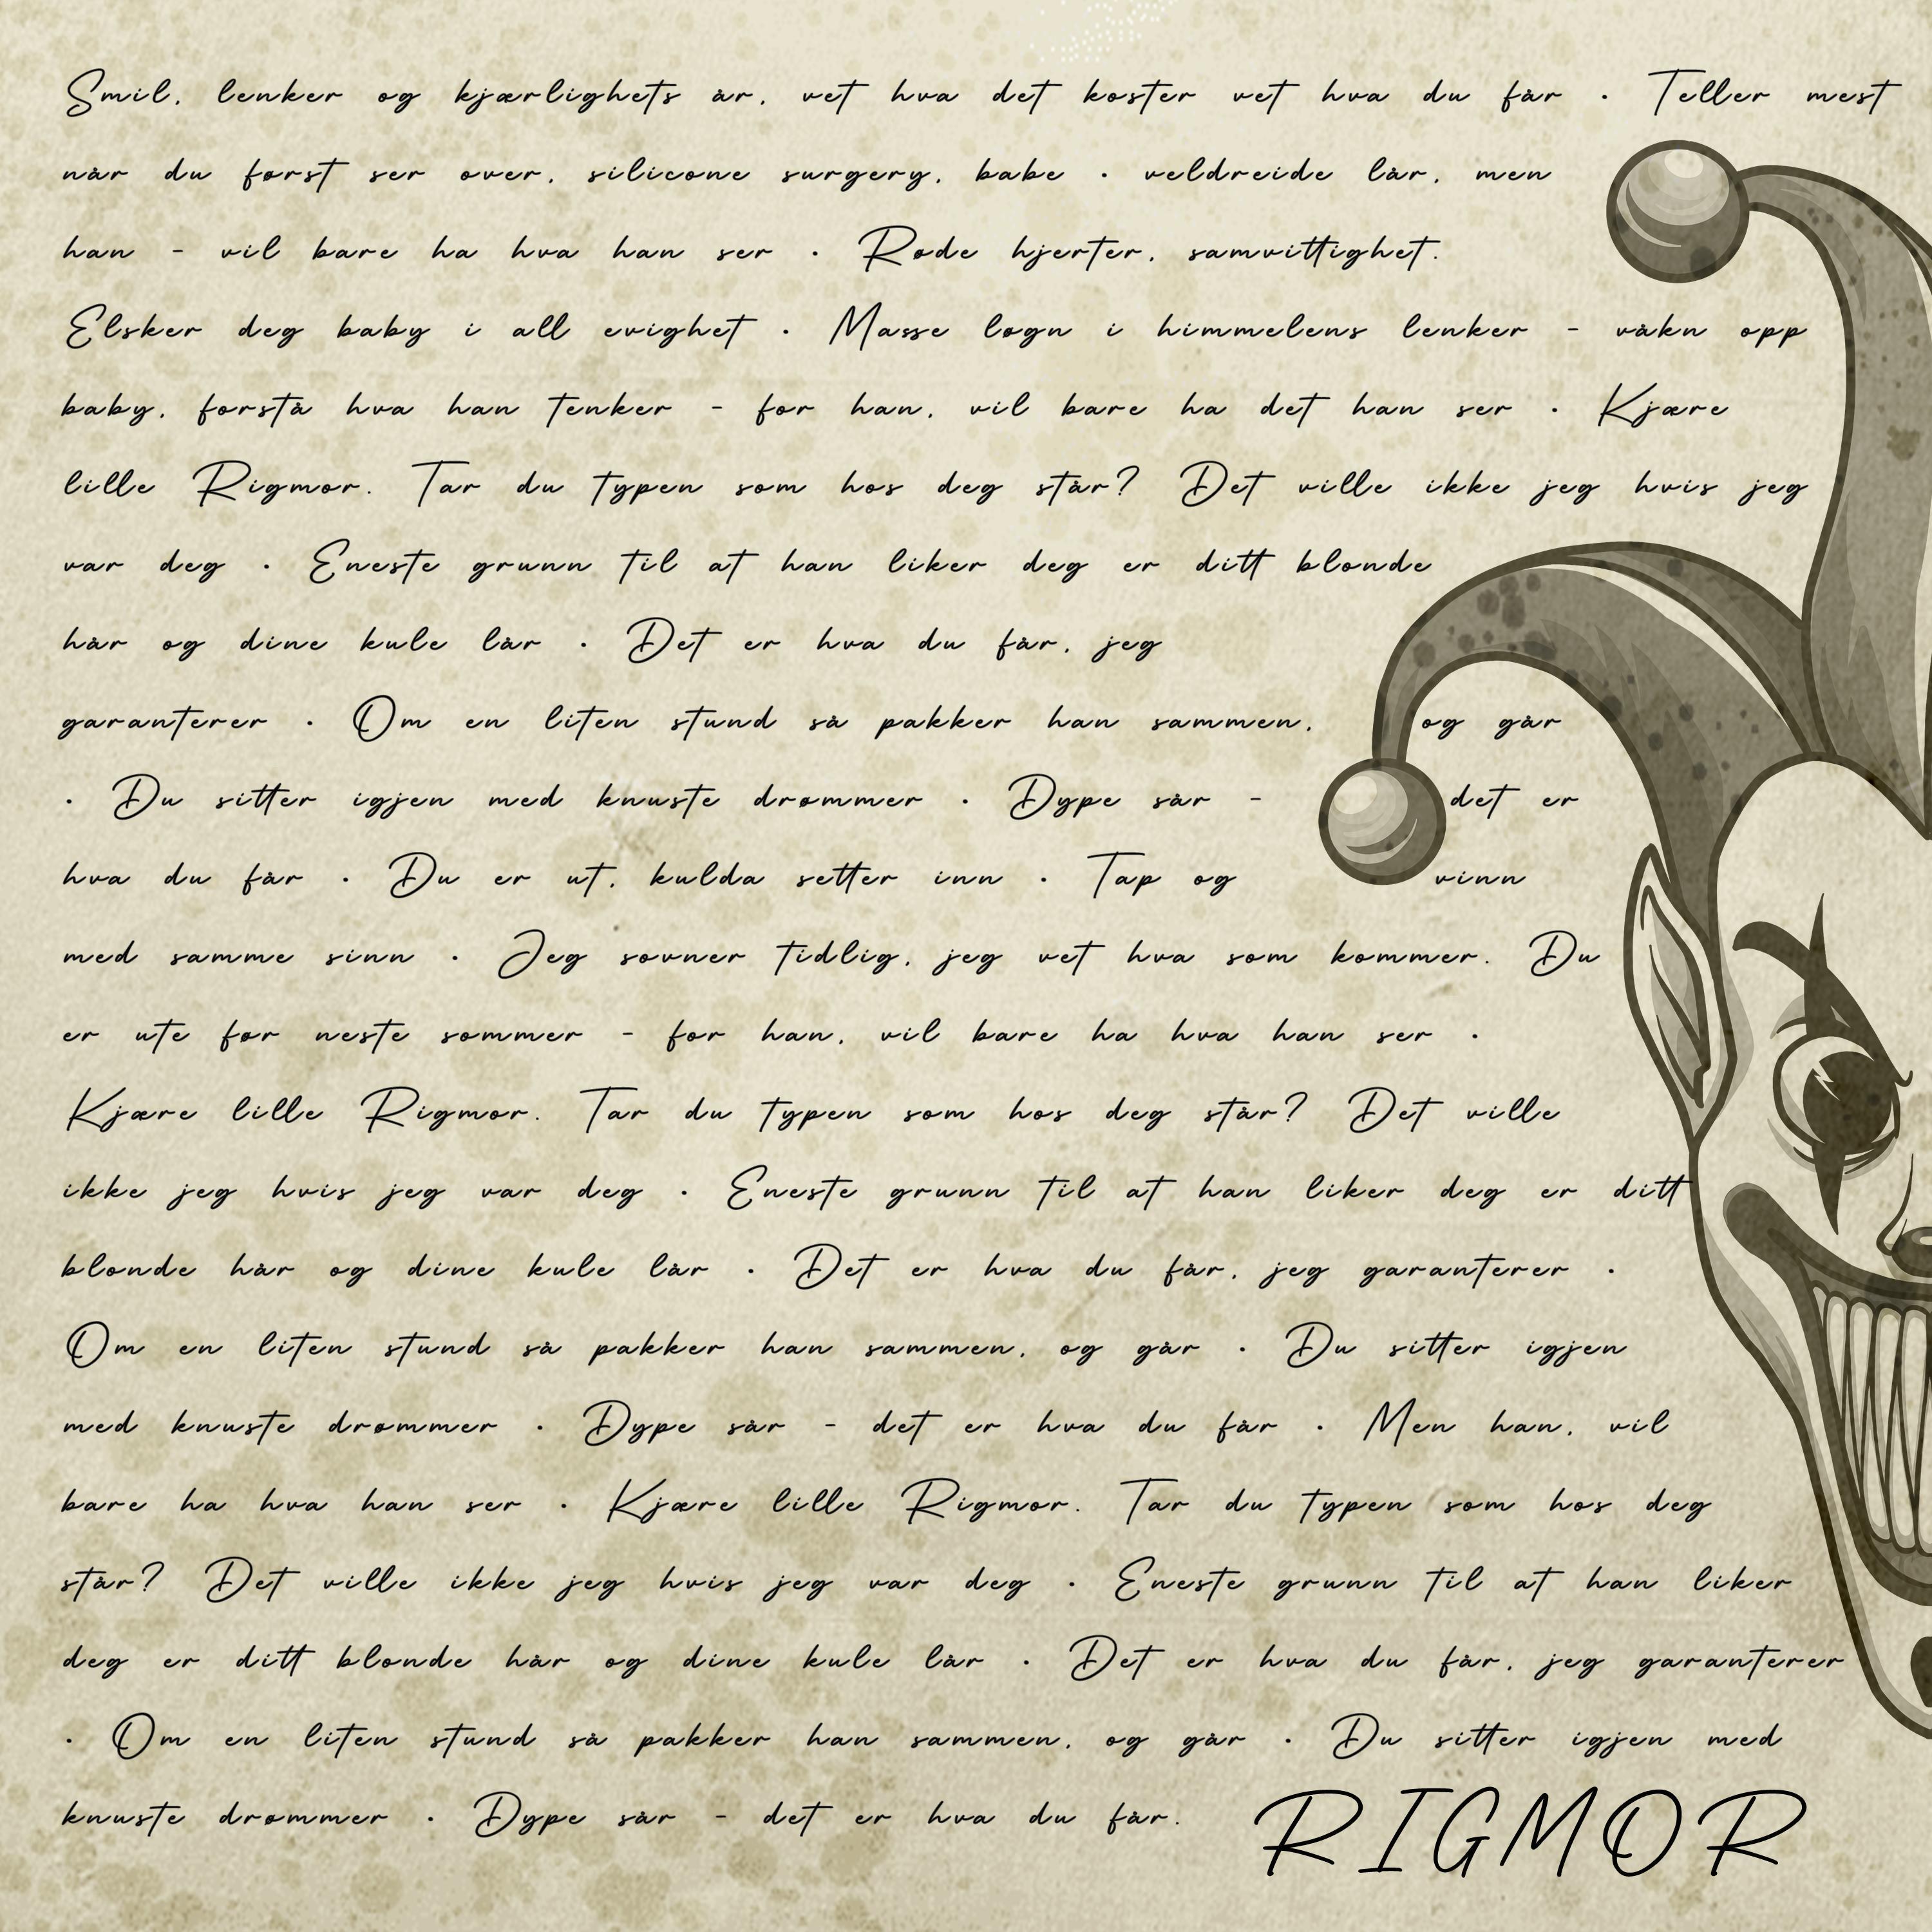 Smil, lenker og kjærlighets år, vet hva det koster vet hva du får · Teller mest
når du først ser over, silicone surgery, babe · veldreide lår, men
han - vil bare ha hva han ser · Røde hjerter, samvittighet.
Elsker deg baby i all evighet · Masse løgn i himmelens lenker - våkn opp
baby, forstå hva han tenker - for han, vil bare ha det han ser · Kjære
lille Rigmor. Tar du typen som hos deg står? Det ville ikke jeg hvis jeg
var deg · Eneste grunn til at han liker deg er ditt blonde
hår og dine kule lår · Det er hva du får, jeg
garanterer · Om en liten stund så pakker han sammen, og går
· Du sitter igjen med knuste drømmer · Dype sår - det er
hva du får · Du er ut, kulda setter inn · Tap og vinn
med samme sinn · Jeg søvner tidlig, jeg vet hva som kommer. Du
er ute før neste sommer - for han, vil bare ha hva han ser ·
Kjære lille Rigmor. Tar du typen som hos deg står? Det ville
ikke jeg hvis jeg var deg · Eneste grunn til at han liker deg er ditt
blonde hår og dine kule lår · Det er hva du får, jeg garanterer ·
Om en liten stund så pakker han sammen, og går · Du sitter igjen
med knuste drømmer · Dype sår - det er hva du får · Men han, vil
bare ha hva han ser · Kjære lille Rigmor. Tar du typen som hos deg
står? Det ville ikke jeg hvis jeg var deg · Eneste grunn til at han liker
deg er ditt blonde hår og dine kule lår · Det er hva du får, jeg garanterer
· Om en liten stund så pakker han sammen, og går · Du sitter igjen med
knuste drømmer · Dype sår - det er hva du får.
RIGMOR